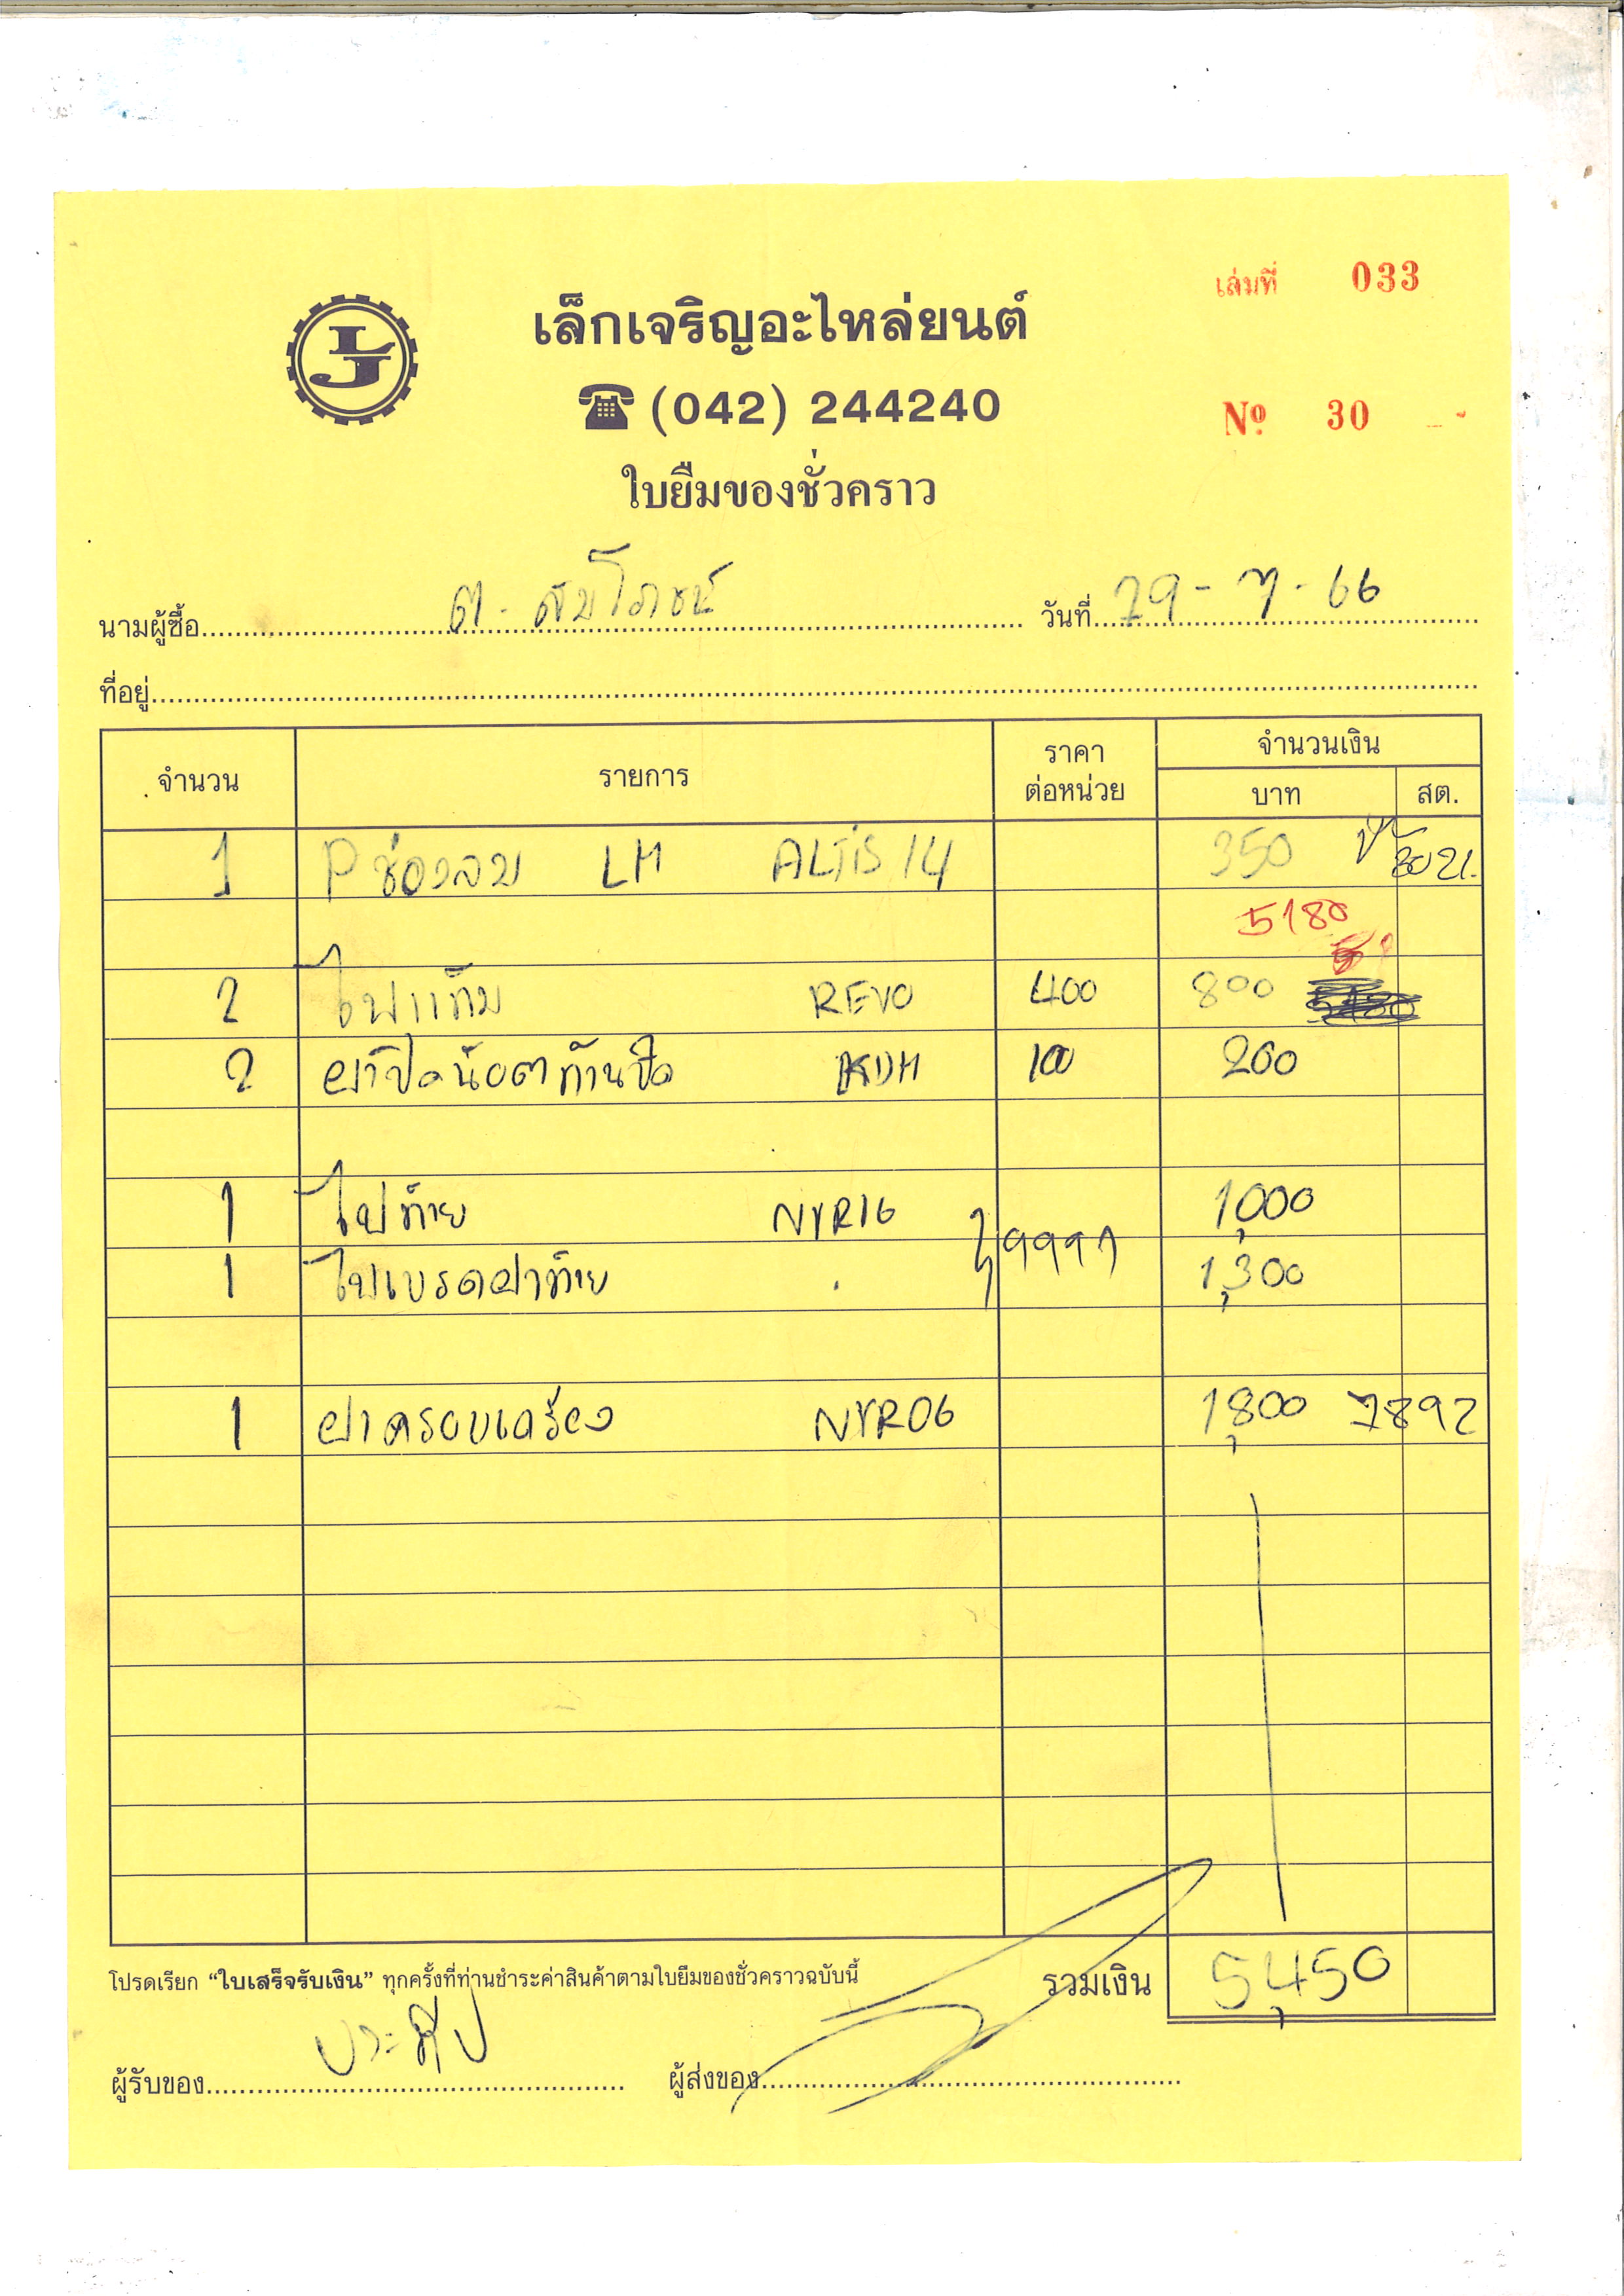 เล่มที่ 033
LJ
เล็กเจริญอะไหล่ยนต์
☎ (042) 244240
Nº 30
ใบยืมของชั่วคราว
นามผู้ซื้อ ต. สมโภชน์ วันที่ 29-7-66
ที่อยู่
จำนวน รายการ ราคาต่อหน่วย จำนวนเงิน
บาท สต.
1 P ช่องลม LH ALTIS 14 350
5180
2 ไฟแก้ม REVO 400 800
2 ฝาปิดน๊อตก้านปัด KDH 100 200
1 ไฟท้าย NYR16 1,000
1 ไฟเบรคฝาท้าย 1,300
1 ฝาครอบเครื่อง NYR06 1,800 7892
โปรดเรียก “ใบเสร็จรับเงิน” ทุกครั้งที่ท่านชำระค่าสินค้าตามใบยืมของชั่วคราวฉบับนี้ รวมเงิน 5,450
ผู้รับของ ประทีป ผู้ส่งของ